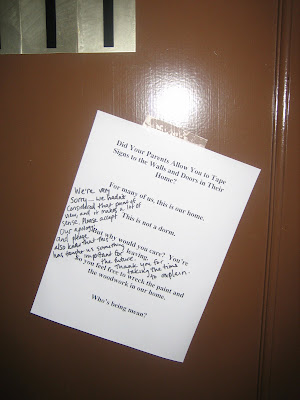 Did Your Parents Allow You to Tape
Signs to the Walls and Doors in Their
Home?
For many of us, this is our home.
This is not a dorm.
But why would you care? You're
leaving.
So you feel free to wreck the paint and
the woodwork in our home.
Who's being mean?
We're very
sorry — we hadn't
considered that point of
view, and it makes a lot of
sense. Please accept
our apology
and please
also know that this
has taught us something
important for
the future.
Thank you for
taking the time
to explain.